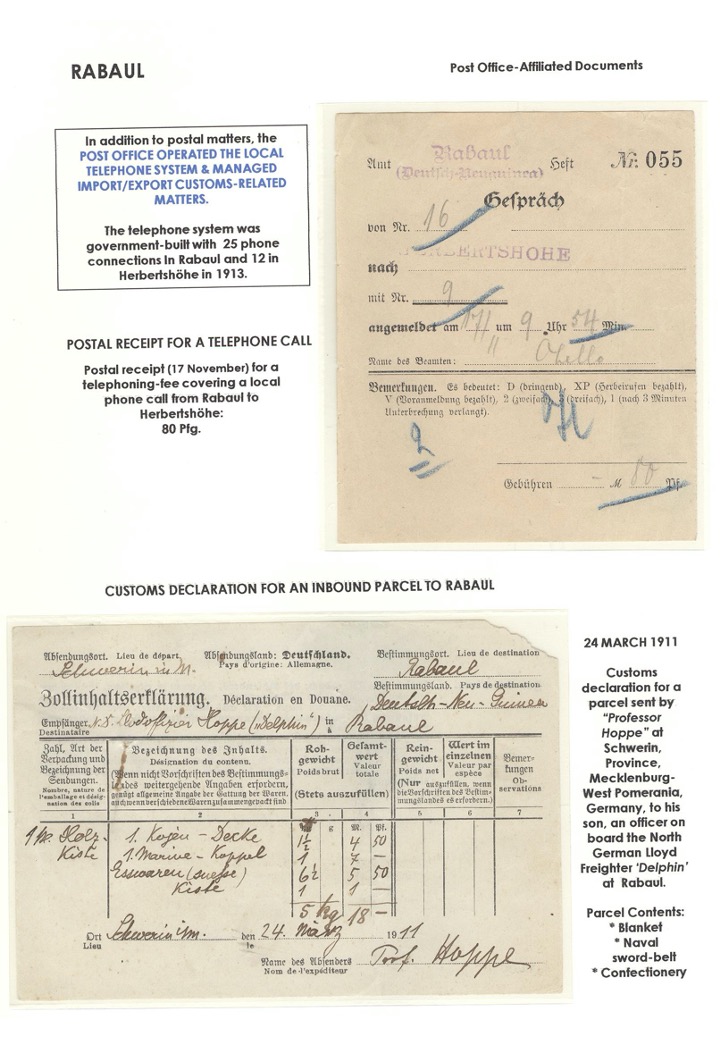 RABAUL
Post Office-Affiliated Documents
In addition to postal matters, the
POST OFFICE OPERATED THE LOCAL
TELEPHONE SYSTEM & MANAGED
IMPORT/EXPORT CUSTOMS-RELATED
MATTERS.
The telephone system was
government-built with 25 phone
connections In Rabaul and 12 in
Herbertshöhe in 1913.
POSTAL RECEIPT FOR A TELEPHONE CALL
Postal receipt (17 November) for a
telephoning-fee covering a local
phone call from Rabaul to
Herbertshöhe:
80 Pfg.
Amt Rabaul Heft Nr. 055
(Deutsch-Neuguinea)
Gespräch
von Nr. 16
nach HERBERTSHÖHE
mit Nr. 9
angemeldet am 17/11 um 9 Uhr 54 Min.
Name des Beamten:
Bemerkungen. Es bedeutet: D (dringend), XP (Herbeirufen bezahlt),
V (Voranmeldung bezahlt), 2 (zweifach), 3 (dreifach), 1 (nach 3 Minuten
Unterbrechung verlangt).
2
Gebühren – M 80 Pf.
CUSTOMS DECLARATION FOR AN INBOUND PARCEL TO RABAUL
Absendungsort. Lieu de départ. Absendungsland: Deutschland. Bestimmungsort. Lieu de destination
Schwerin i/M. Pays d'origine: Allemagne. Rabaul
Bestimmungsland. Pays de destination
Zollinhaltserklärung. Déclaration en Douane. Deutsch-Neu-Guinea
Empfänger Hoppe ("Delphin") in Rabaul
Destinataire à
Zahl, Art der Verpackung und Bezeichnung der Sendungen.
Nombre, nature de l'emballage et désignation des colis
Bezeichnung des Inhalts.
Désignation du contenu.
(Wenn nicht Vorschriften des Bestimmungslandes weitergehende Angaben erfordern, genügt allgemeine Angabe der Gattung der Waren, auch wenn verschiedene Waren zusammengepackt sind
Rohgewicht Poids brut
Gesamtwert Valeur totale
(Stets auszufüllen)
Reingewicht Poids net
Wert im einzelnen Valeur par espèce
(Nur auszufüllen, wenn die Vorschriften des Bestimmungslandes es erfordern.)
Bemerkungen Observations
1 2 3 4 5 6 7
g M. Pf.
Holz- 1. Kojen-Decke 1½ 4 50
Kiste 1. Marine-Koppel 1 7 –
Esswaren 6½ 5 50
Kiste 1 1 –
5 kg 18 –
Ort Schwerin i/M. den 24. März 1911
Lieu le
Name des Absenders Prof. Hoppe
Nom de l'expéditeur
24 MARCH 1911
Customs
declaration for a
parcel sent by
"Professor
Hoppe" at
Schwerin,
Province,
Mecklenburg-
West Pomerania,
Germany, to his
son, an officer on
board the North
German Lloyd
Freighter 'Delphin'
at Rabaul.
Parcel Contents:
* Blanket
* Naval
sword-belt
* Confectionery